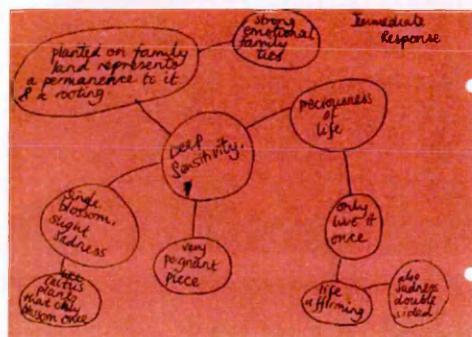 Immediate
Response
strong
emotional
family
ties
planted on family
land represents
a permanence to it
& a rooting.
preciousness
of
life
Deep
Sensitivity.
single
blossom,
slight
sadness
very
pognant
piece
only
live it
once
like
cactus
plants
that only
blossom once
life
affirming
also
sadness
double
sided